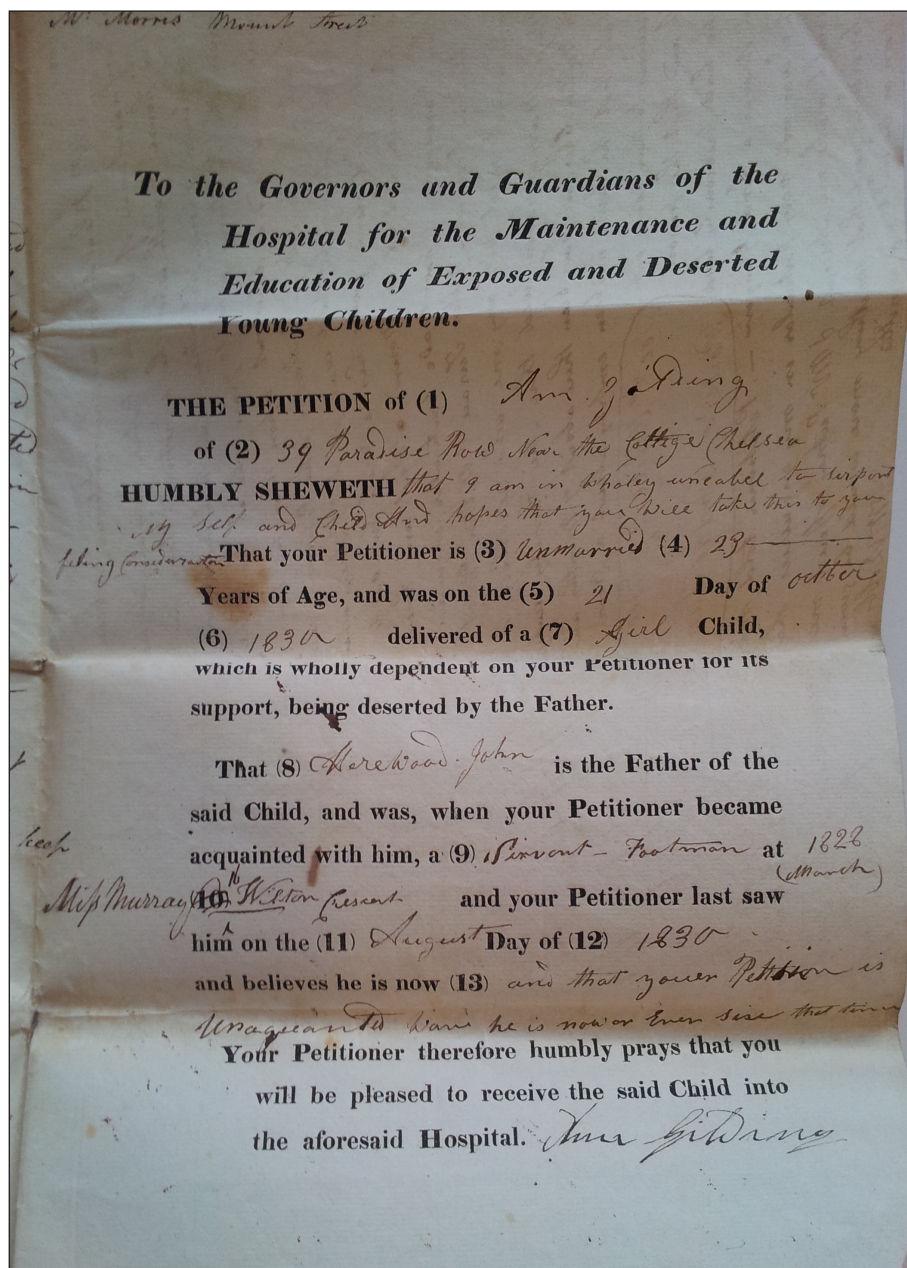 Mr. Morris Mount Street
To the Governors and Guardians of the
Hospital for the Maintenance and
Education of Exposed and Deserted
Young Children.
THE PETITION of (1) Ann Gilding
of (2) 39 Paradise Row Near the Cottige Chelsea
HUMBLY SHEWETH that I am in wholey uneabel to
My Self and Child And hopes that you will take this to your
feling Consideraation That your Petitioner is (3) Unmarried (4) 23
Years of Age, and was on the (5) 21 Day of octber
(6) 1830 delivered of a (7) Girl Child,
which is wholly dependent on your Petitioner for its
support, being deserted by the Father.
That (8) Harewood John is the Father of the
said Child, and was, when your Petitioner became
keep
acquainted with him, a (9) Sirvent - Footman at 1828
(March)
Miss Murray (10) 16 Wilton Crescent and your Petitioner last saw
him on the (11) August Day of (12) 1830
and believes he is now (13) and that youer Petition is
he is now or Ever sise that time
Your Petitioner therefore humbly prays that you
will be pleased to receive the said Child into
the aforesaid Hospital. Ann Gilding